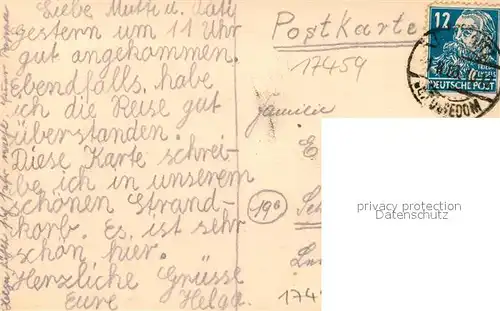 Liebe Mutti u. Vati
gestern um 11 Uhr
gut angekommen.
Ebendfalls habe
ich die Reise gut
überstanden.
Diese Karte schrei-
be ich in unserem
schönen Strand-
korb. Es ist sehr
schön hier.
Herzliche Grüsse
Eure Helga
Postkarte
17459
Familie
196
174
12
DEUTSCHE POST
USEDOM
privacy protection
Datenschutz